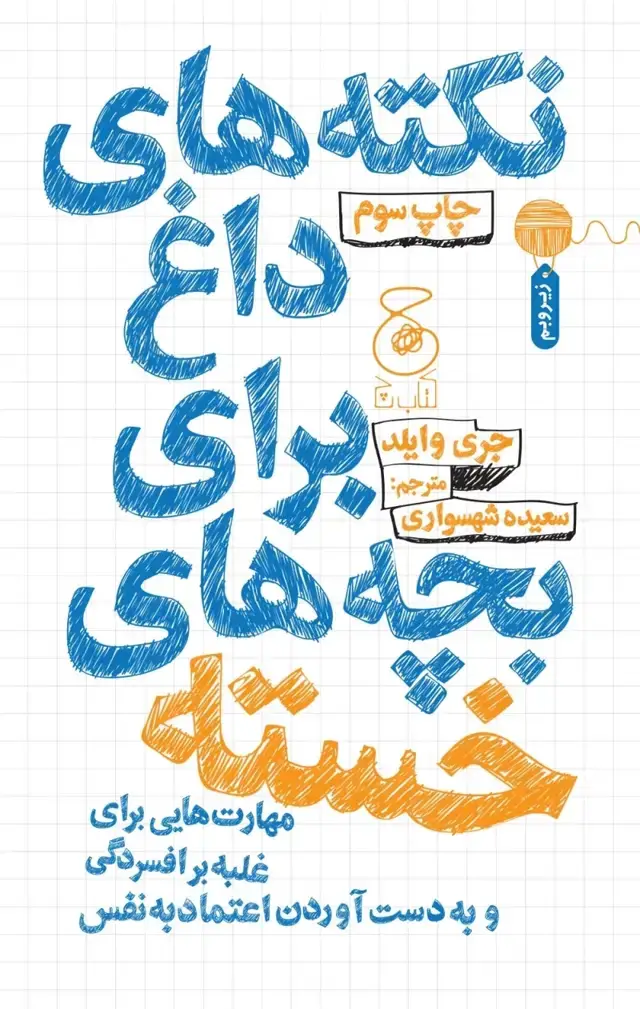 نکته‌های
چاپ سوم
داغ
زیر و بم
کتاب چ
برای
جری وایلد
مترجم:
سعیده شهسواری
بچه‌های
خسته
مهارت‌هایی برای
غلبه بر افسردگی
و به دست آوردن اعتماد به نفس